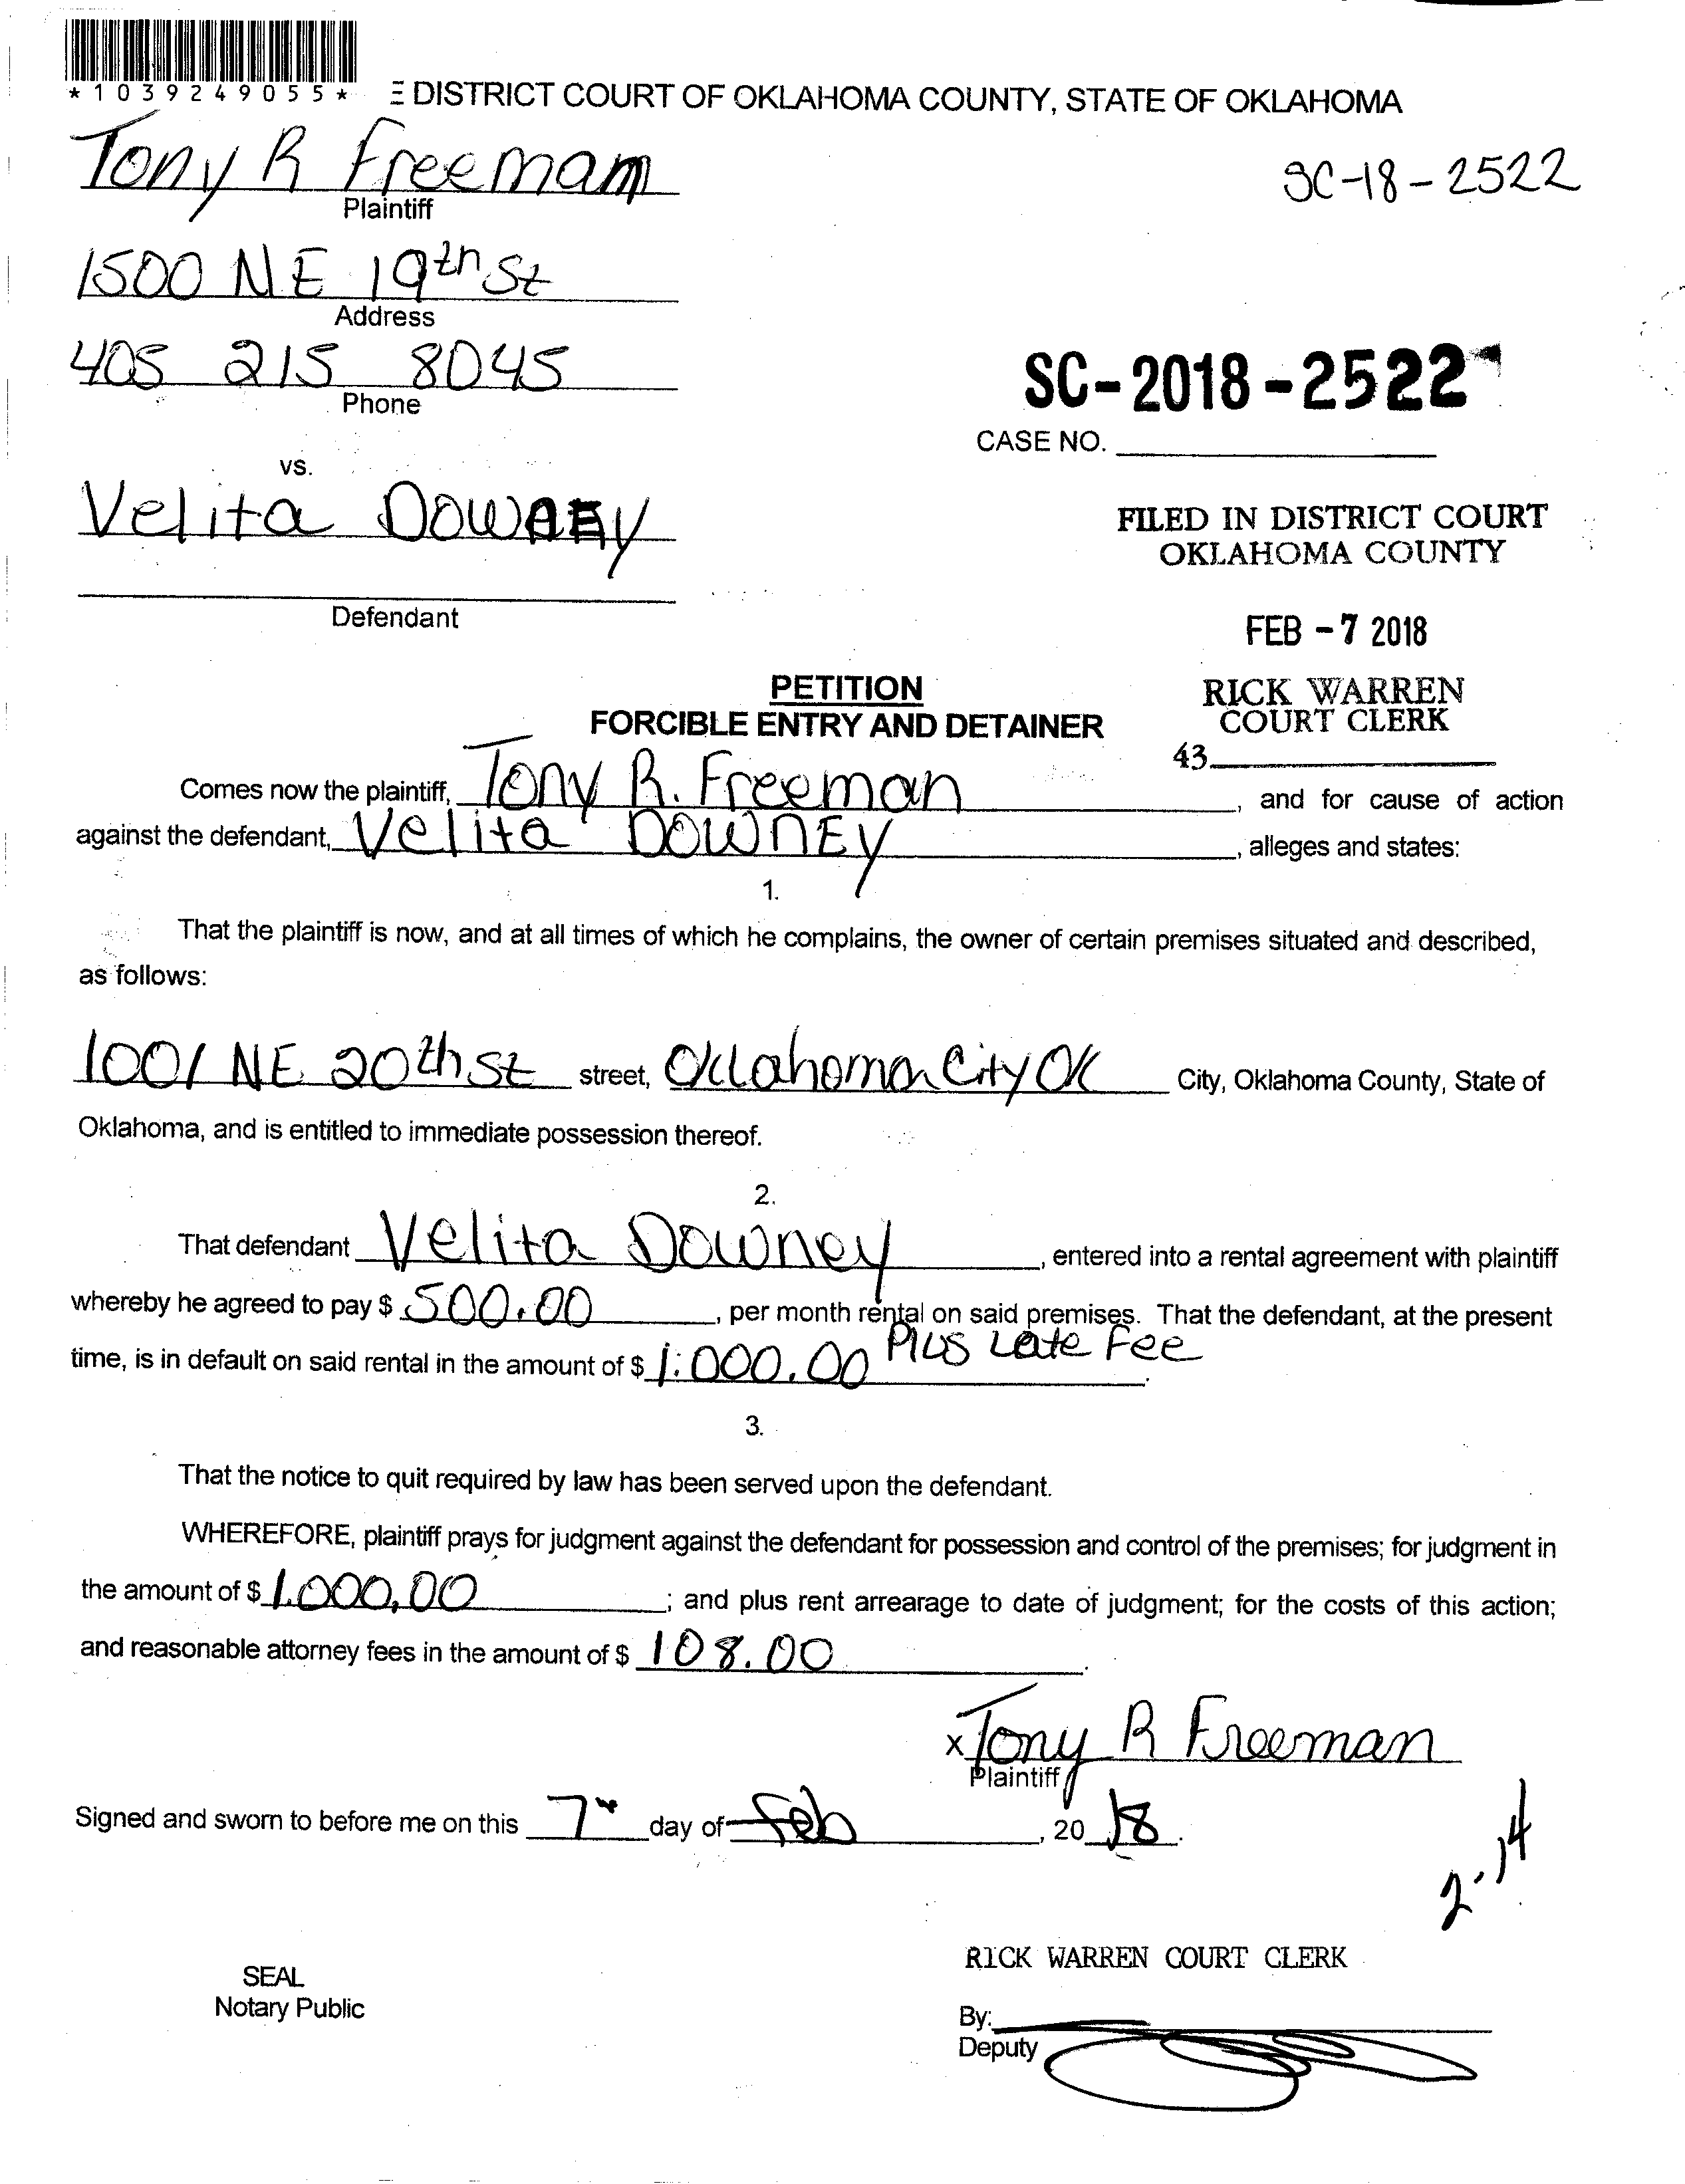 *1039249055*
E DISTRICT COURT OF OKLAHOMA COUNTY, STATE OF OKLAHOMA
Tony R Freeman
Plaintiff
SC-18-2522
1500 NE 19th St
Address
405 215 8045
Phone
SC-2018-2522
CASE NO.
vs.
Velita Downey
Defendant
FILED IN DISTRICT COURT
OKLAHOMA COUNTY
FEB -7 2018
RICK WARREN
COURT CLERK
43
PETITION
FORCIBLE ENTRY AND DETAINER
Comes now the plaintiff, Tony R. Freeman, and for cause of action
against the defendant, Velita DOWNEY, alleges and states:
1.
That the plaintiff is now, and at all times of which he complains, the owner of certain premises situated and described,
as follows:
1001 NE 20th St street, Oklahoma City OK City, Oklahoma County, State of
Oklahoma, and is entitled to immediate possession thereof.
2.
That defendant Velita Downey, entered into a rental agreement with plaintiff
whereby he agreed to pay $ 500.00, per month rental on said premises. That the defendant, at the present
time, is in default on said rental in the amount of $ 1:000.00 Plus Late Fee.
3.
That the notice to quit required by law has been served upon the defendant.
WHEREFORE, plaintiff prays for judgment against the defendant for possession and control of the premises; for judgment in
the amount of $ 1.000,00; and plus rent arrearage to date of judgment; for the costs of this action;
and reasonable attorney fees in the amount of $ 108.00.
x Tony R Freeman
Plaintiff
Signed and sworn to before me on this 7th day of Feb, 20 18.
2-14
RICK WARREN COURT CLERK
SEAL
Notary Public
By:
Deputy